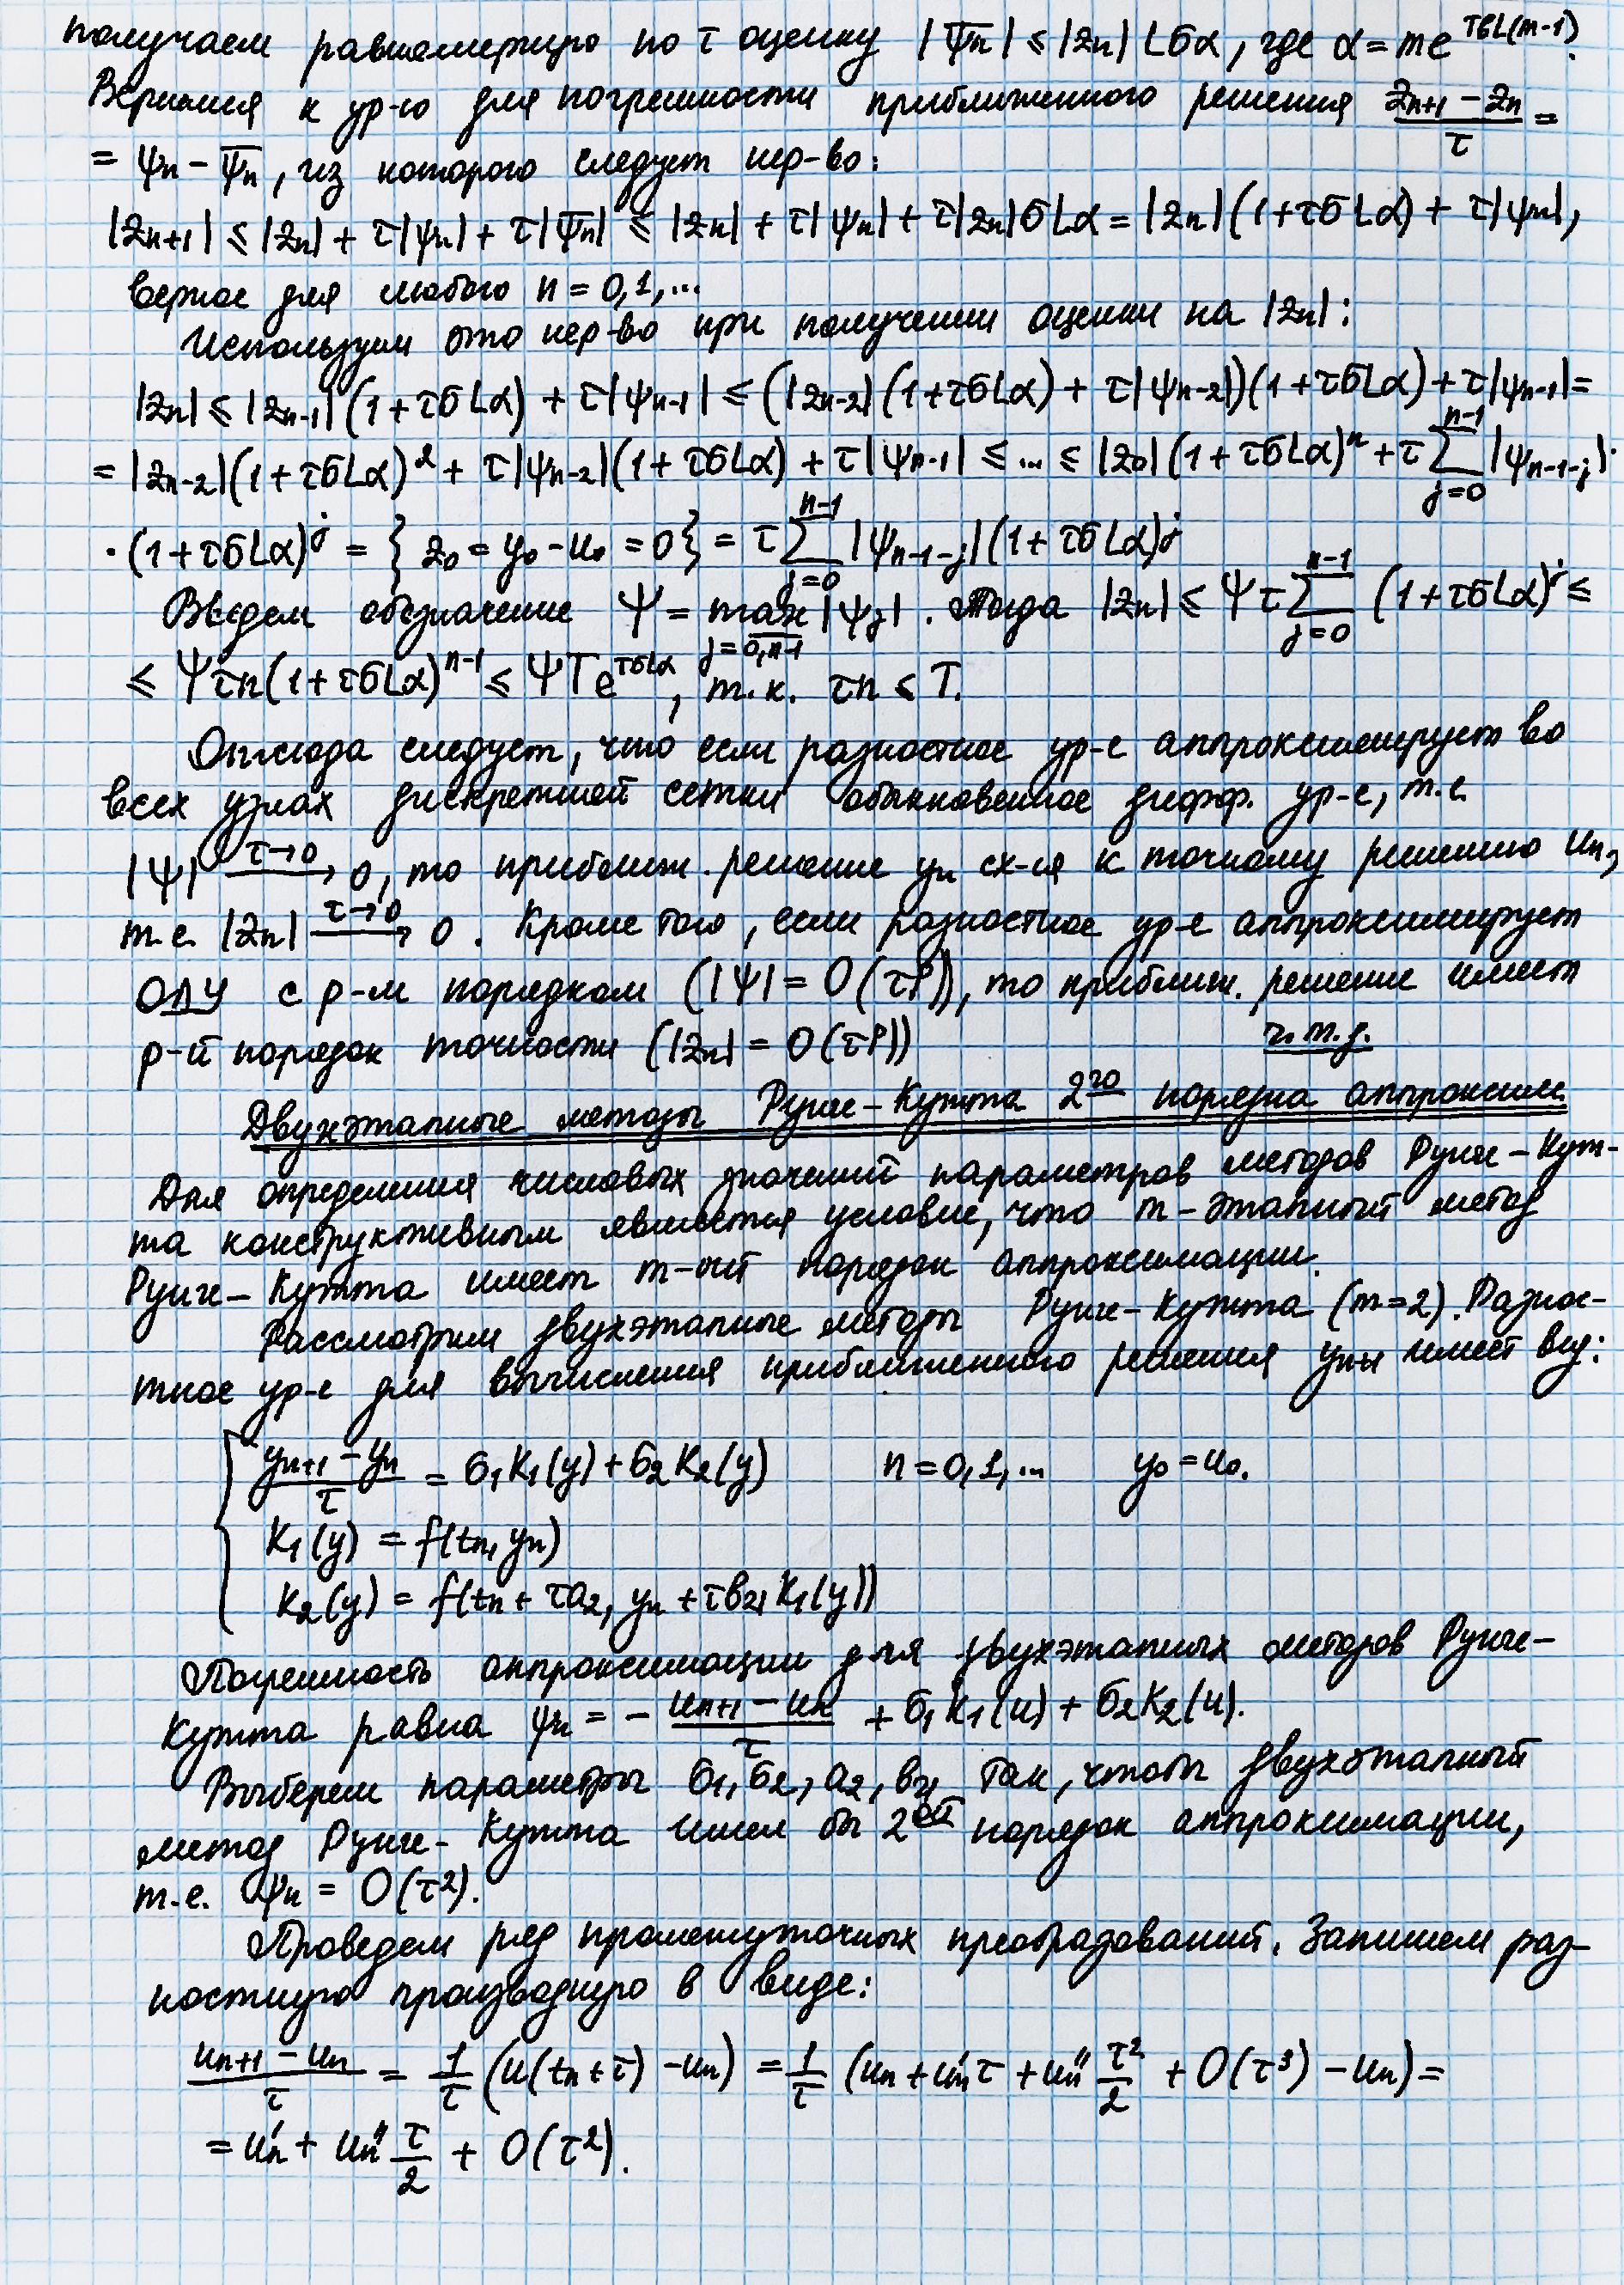 получаем равномерную по τ оценку |ψ̅n| ≤ |zn| Lσα, где α = m e^{TбL(m-1)}.
Вернемся к ур-ю для погрешности приближенного решения (zn+1 − zn)/τ =
= ψn − ψ̅n, из которого следует нер-во:
|zn+1| ≤ |zn| + τ|ψn| + τ|ψ̅n| ≤ |zn| + τ|ψn| + τ|zn|σLα = |zn|(1+τσLα) + τ|ψn|,
верное для любого n = 0,1,...
Используем это нер-во при получении оценки на |zn|:
|zn| ≤ |zn-1|(1+τσLα) + τ|ψn-1| ≤ (|zn-2|(1+τσLα) + τ|ψn-2|)(1+τσLα) + τ|ψn-1| =
= |zn-2|(1+τσLα)² + τ|ψn-2|(1+τσLα) + τ|ψn-1| ≤ ... ≤ |z0|(1+τσLα)^n + τ ∑_{j=0}^{n-1} |ψn-1-j| ·
· (1+τσLα)^j = { z0 = y0 − u0 = 0 } = τ ∑_{j=0}^{n-1} |ψn-1-j|(1+τσLα)^j
Введем обозначение Ψ = max_{j=0,n-1} |ψj|. Тогда |zn| ≤ Ψτ ∑_{j=0}^{n-1} (1+τσLα)^j ≤
≤ Ψτn(1+τσLα)^{n-1} ≤ ΨTe^{TσLα}, т.к. τn ≤ T.
Отсюда следует, что если разностное ур-е аппроксимирует во
всех узлах дискретной сетки обыкновенное дифф. ур-е, т.е.
|Ψ| —τ→0→ 0, то приближ. решение yn сх-ся к точному решению un,
т.е. |zn| —τ→0→ 0. Кроме того, если разностное ур-е аппроксимирует
ОДУ с p-м порядком (|Ψ| = O(τ^p)), то приближ. решение имеет
p-й порядок точности (|zn| = O(τ^p)) ч.т.д.
Двухэтапные методы Рунге-Кутта 2го порядка аппроксим.
Для определения числовых значений параметров методов Рунге-Кут-
та конструктивным является условие, что m-этапный метод
Рунге-Кутта имеет m-ый порядок аппроксимации.
Рассмотрим двухэтапные методы Рунге-Кутта (m=2). Разнос-
тное ур-е для вычисления приближенного решения yn+1 имеет вид:
(yn+1 − yn)/τ = σ1K1(y) + σ2K2(y) n = 0,1,... y0 = u0.
K1(y) = f(tn, yn)
K2(y) = f(tn + τa2, yn + τв21K1(y))
Погрешность аппроксимации для двухэтапных методов Рунге-
Кутта равна ψn = − (un+1 − un)/τ + σ1K1(u) + σ2K2(u).
Выберем параметры σ1, σ2, a2, в21 так, чтобы двухэтапный
метод Рунге-Кутта имел бы 2ой порядок аппроксимации,
т.е. ψn = O(τ²).
Проведем ряд промежуточных преобразований. Запишем раз-
ностную производную в виде:
(un+1 − un)/τ = 1/τ (u(tn+τ) − un) = 1/τ (un + u'nτ + un'' τ²/2 + O(τ³) − un) =
= u'n + un'' τ/2 + O(τ²).